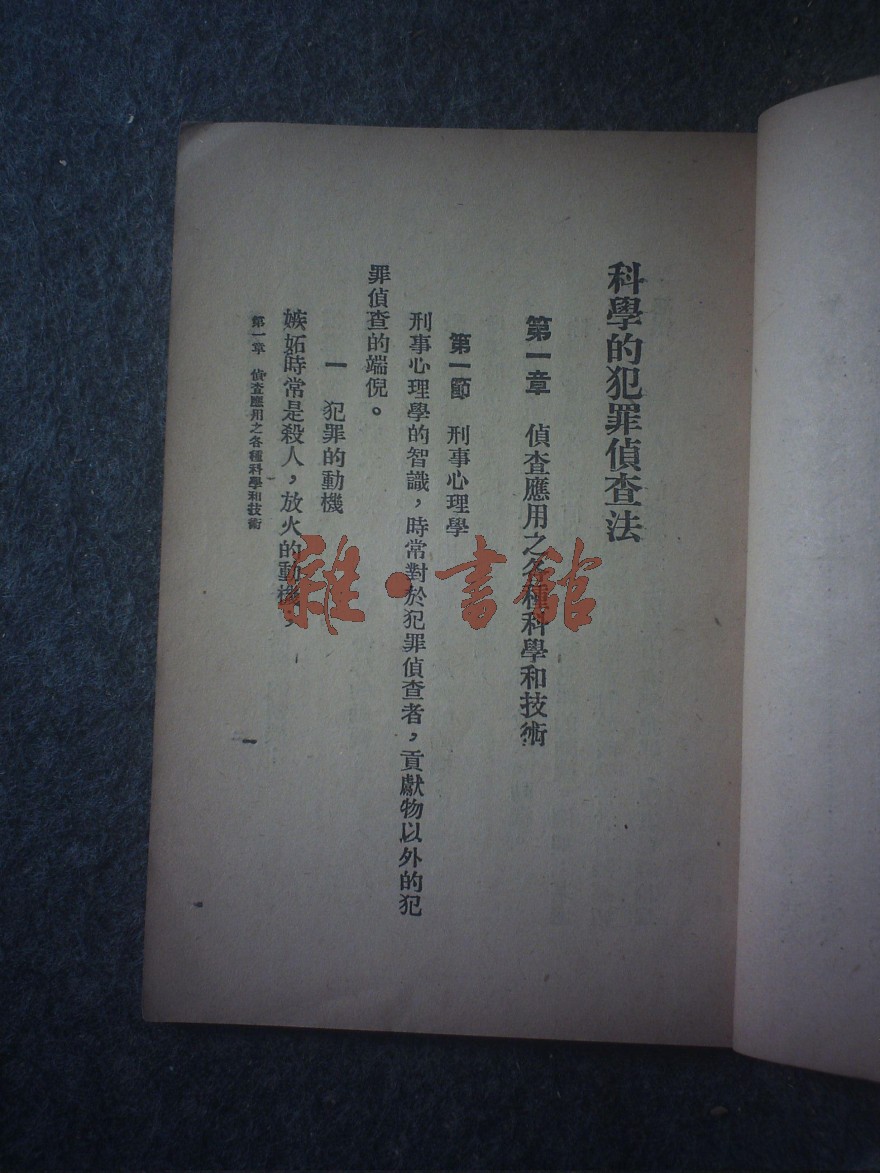 科學的犯罪偵查法
第一章　偵查應用之各種科學和技術
第一節　刑事心理學
刑事心理學的智識，時常對於犯罪偵查者，貢獻物以外的犯
罪偵查的端倪。
一　犯罪的動機
嫉妬時常是殺人，放火的動機，
第一章　偵查應用之各種科學和技術
一
雜·書館